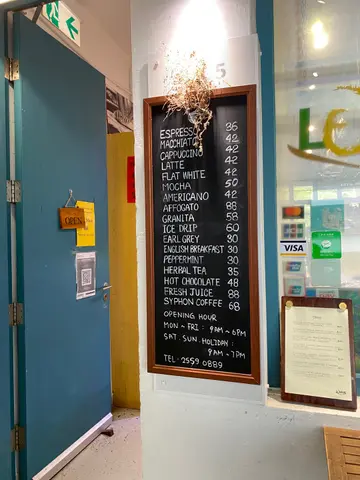 5
ESPRESSO 36
MACCHIATO 42
CAPPUCCINO 42
LATTE 42
FLAT WHITE 42
MOCHA 50
AMERICANO 42
AFFOGATO 88
GRANITA 58
ICE DRIP 60
EARL GREY 30
ENGLISH BREAKFAST 30
PEPPERMINT 30
HERBAL TEA 35
HOT CHOCOLATE 48
FRESH JUICE 88
SYPHON COFFEE 68
OPENING HOUR
MON ~ FRI : 9AM ~ 6PM
SAT. SUN. HOLIDAY :
9AM ~ 7PM
TEL: 2559 0889
OPEN
VISA